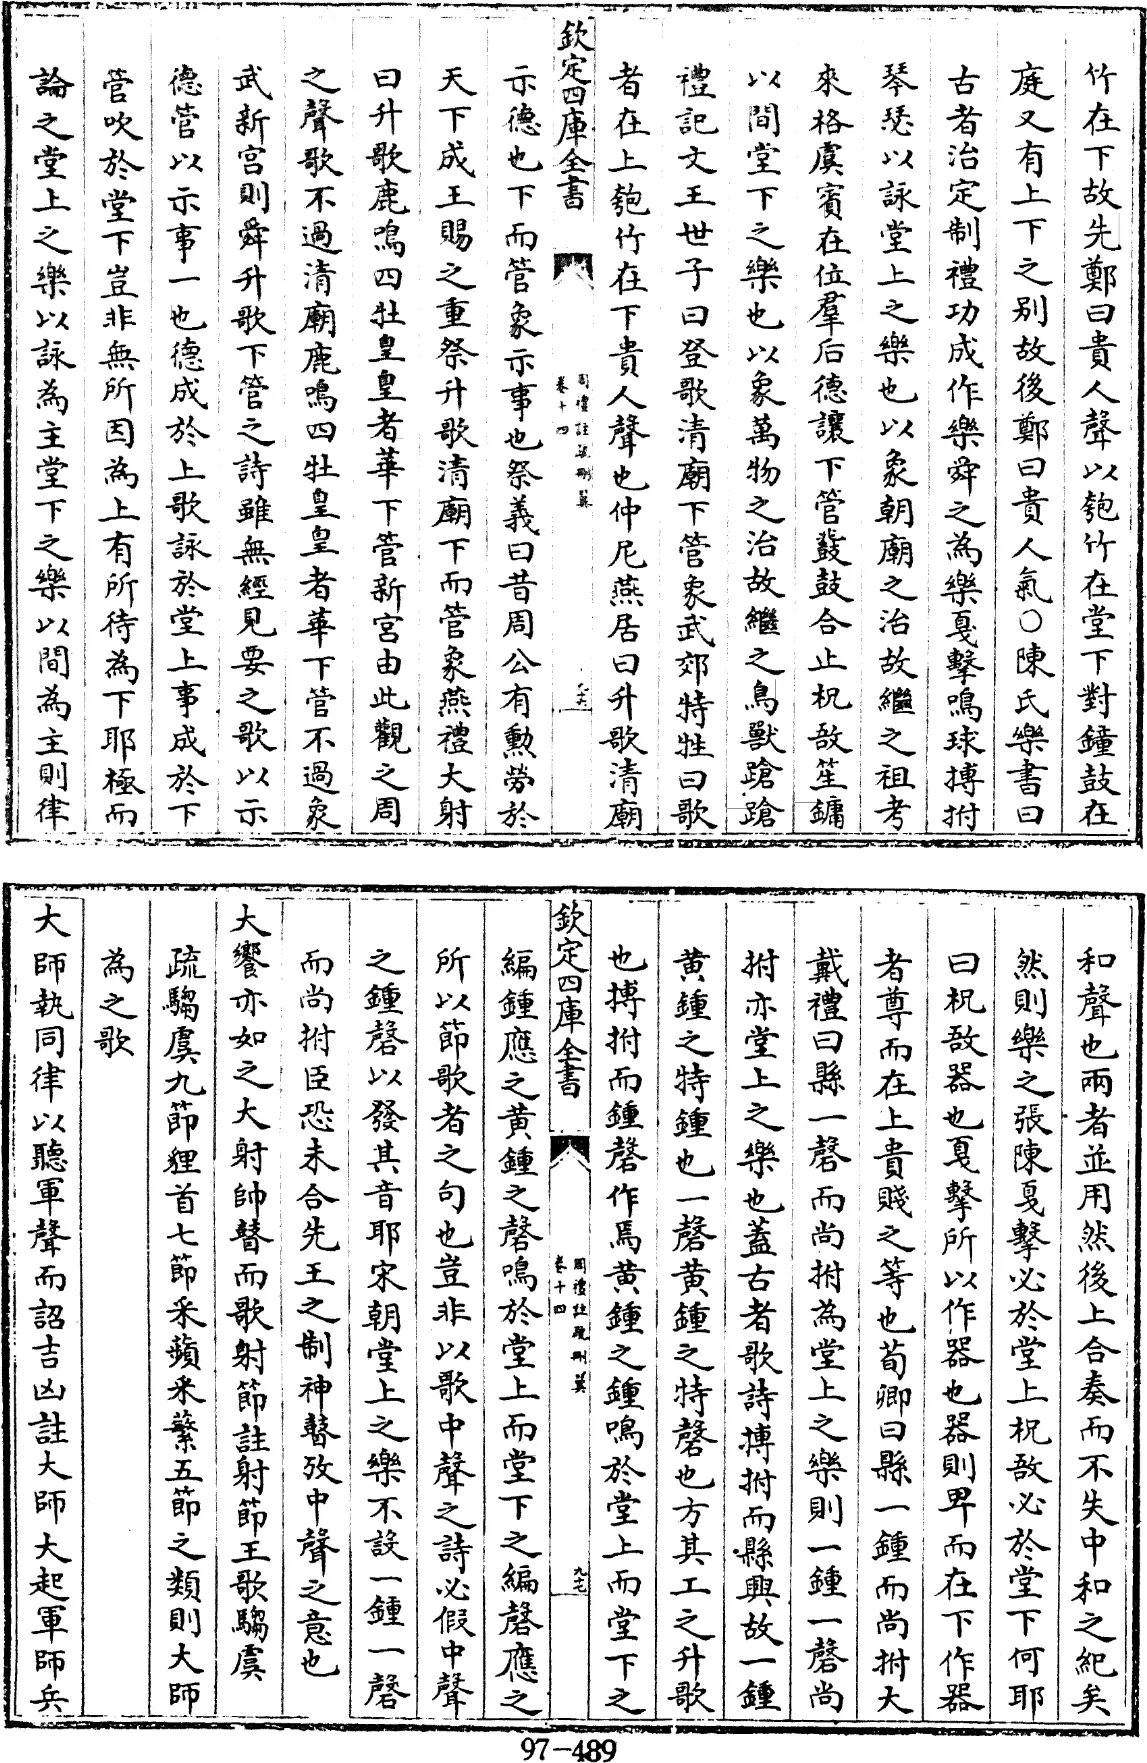 竹在下故先鄭曰貴人聲以匏竹在堂下對鐘鼓在
庭又有上下之别故後鄭曰貴人氣○陳氏樂書曰
古者治定制禮功成作樂舜之為樂戛擊鳴球搏拊
琴瑟以詠堂上之樂也以象朝廟之治故繼之祖考
來格虞賓在位羣后德讓下管鼗鼓合止柷敔笙鏞
以間堂下之樂也以象萬物之治故繼之鳥獸蹌蹌
禮記文王世子曰登歌清廟下管象武郊特牲曰歌
者在上匏竹在下貴人聲也仲尼燕居曰升歌清廟
欽定四庫全書
周禮註疏刪翼
卷十四
九六
示德也下而管象示事也祭義曰昔周公有勲勞於
天下成王賜之重祭升歌清廟下而管象燕禮大射
曰升歌鹿鳴四牡皇皇者華下管新宫由此觀之周
之聲歌不過清廟鹿鳴四牡皇皇者華下管不過象
武新宫則舜升歌下管之詩雖無經見要之歌以示
德管以示事一也德成於上歌詠於堂上事成於下
管吹於堂下豈非無所因為上有所待為下耶極而
論之堂上之樂以詠為主堂下之樂以間為主則律
和聲也兩者並用然後上合奏而不失中和之紀矣
然則樂之張陳戛擊必於堂上柷敔必於堂下何耶
曰柷敔器也戛擊所以作器也器則卑而在下作器
者尊而在上貴賤之等也荀卿曰縣一鍾而尚拊大
戴禮曰縣一磬而尚拊為堂上之樂則一鍾一磬尚
拊亦堂上之樂也蓋古者歌詩搏拊而縣興故一鍾
黄鍾之特鍾也一磬黄鍾之特磬也方其工之升歌
也搏拊而鍾磬作焉黄鍾之鍾鳴於堂上而堂下之
欽定四庫全書
周禮註疏刪翼
卷十四
九七
編鍾應之黄鍾之磬鳴於堂上而堂下之編磬應之
所以節歌者之句也豈非以歌中聲之詩必假中聲
之鍾磬以發其音耶宋朝堂上之樂不設一鍾一磬
而尚拊臣恐未合先王之制神瞽攷中聲之意也
大饗亦如之大射帥瞽而歌射節註射節王歌騶虞
疏騶虞九節貍首七節采蘋采蘩五節之類則大師
為之歌
大師執同律以聽軍聲而詔吉凶註大師大起軍師兵
97-489